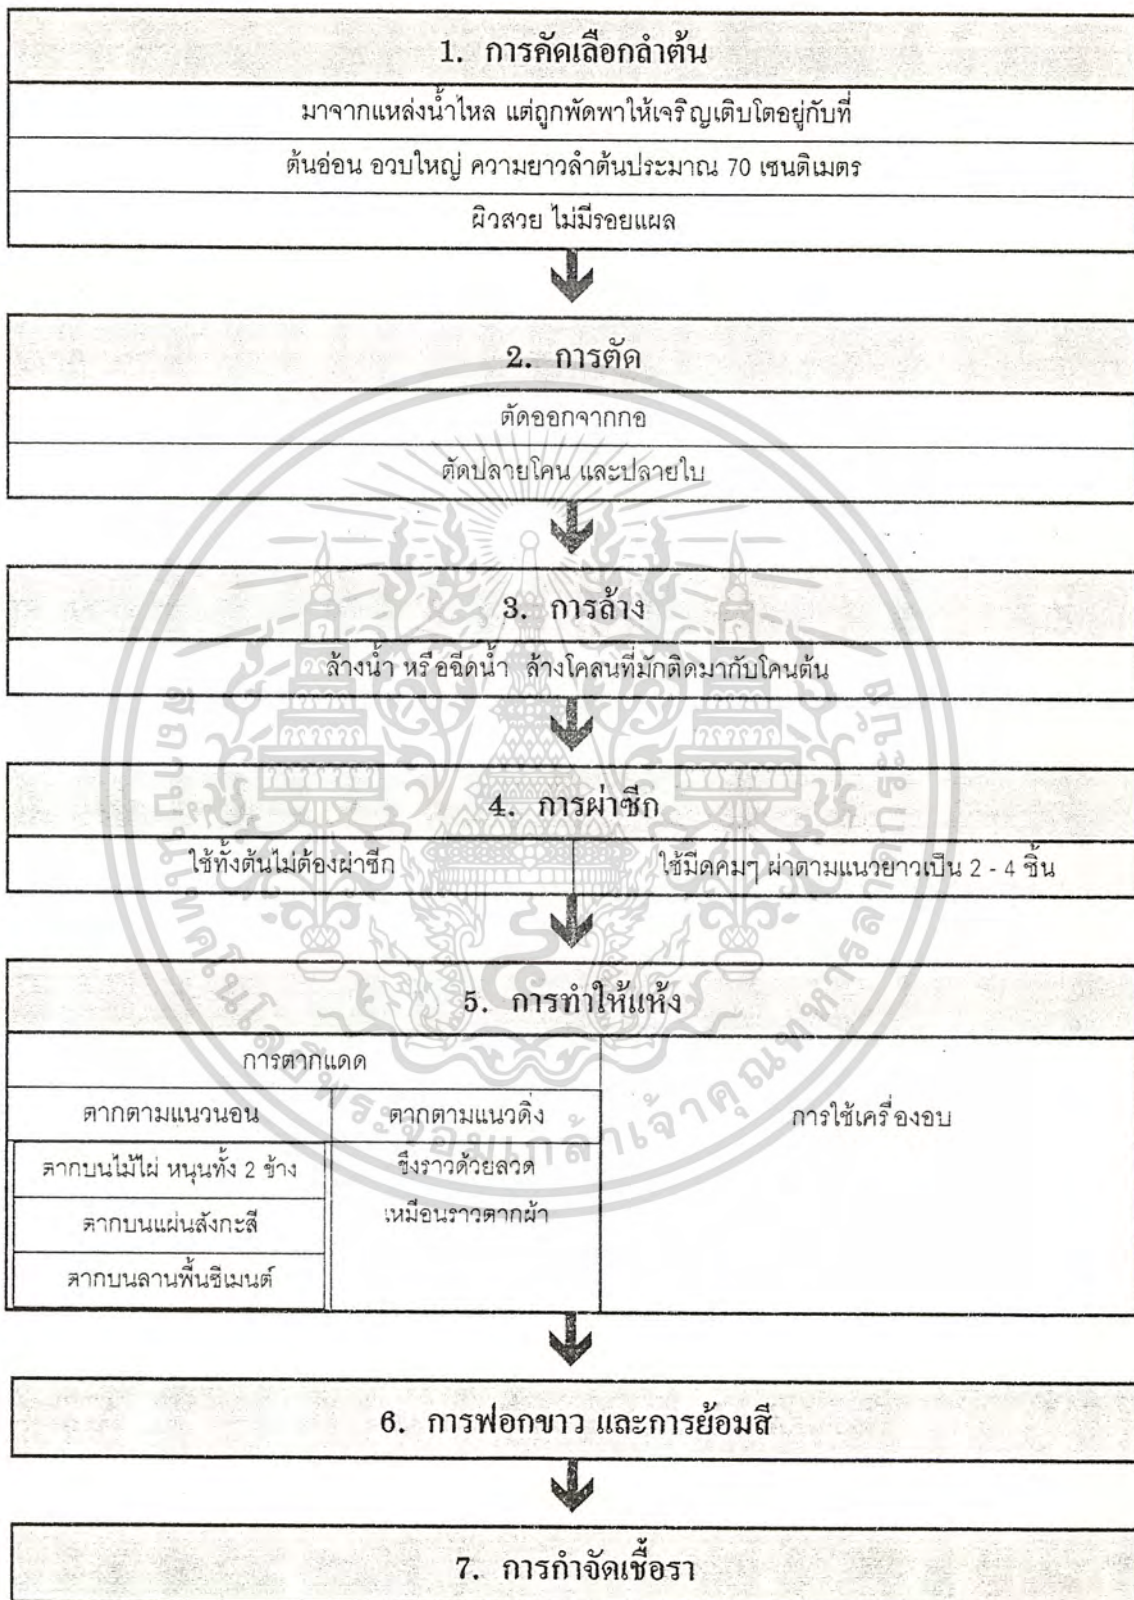 1. การคัดเลือกลำต้น
มาจากแหล่งน้ำไหล แต่ถูกพัดพาให้เจริญเติบโตอยู่กับที่
ต้นอ่อน อวบใหญ่ ความยาวลำต้นประมาณ 70 เซนติเมตร
ผิวสวย ไม่มีรอยแผล
2. การตัด
ตัดออกจากกอ
ตัดปลายโคน และปลายใบ
3. การล้าง
ล้างน้ำ หรือฉีดน้ำ ล้างโคลนที่มักติดมากับโคนต้น
4. การผ่าซีก
ใช้ทั้งต้นไม่ต้องผ่าซีก
ใช้มีดคมๆ ผ่าตามแนวยาวเป็น 2 - 4 ชิ้น
5. การทำให้แห้ง
การตากแดด
ตากตามแนวนอน
ตากบนไม้ไผ่ หนุนทั้ง 2 ข้าง
ตากบนแผ่นสังกะสี
ตากบนลานพื้นซีเมนต์
ตากตามแนวดิ่ง
ขึงราวด้วยลวด
เหมือนราวตากผ้า
การใช้เครื่องอบ
6. การฟอกขาว และการย้อมสี
7. การกำจัดเชื้อรา
สถาบันเทคโนโลยีพระจอมเกล้าเจ้าคุณทหารลาดกระบัง